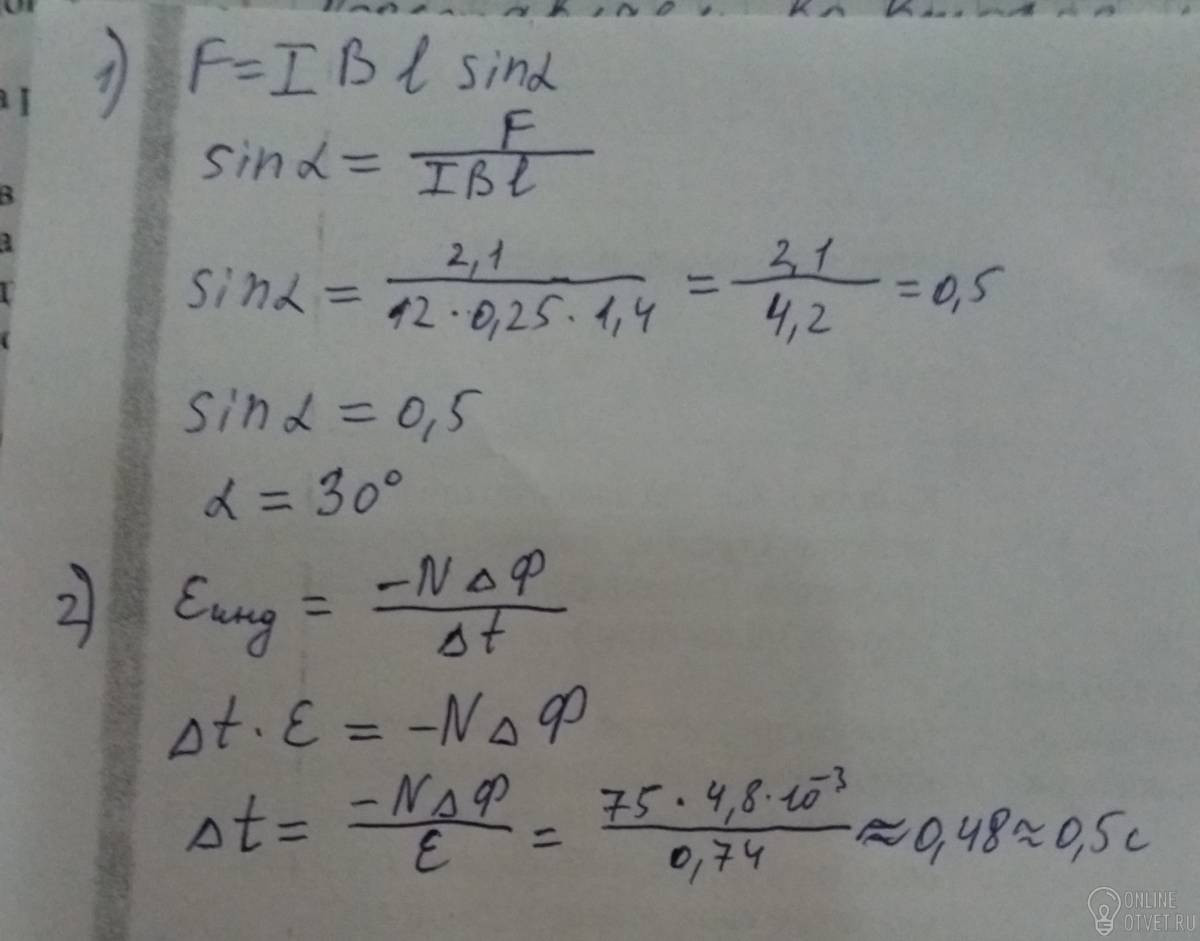 1) F = I B l sinα
sinα = F / IBl
sinα = 2,1 / 12 · 0,25 · 1,4 = 2,1 / 4,2 = 0,5
sinα = 0,5
α = 30°
2) Ɛинд = -NΔФ / Δt
Δt · Ɛ = -NΔФ
Δt = -NΔФ / Ɛ = 75 · 4,8 · 10⁻³ / 0,74 ≈ 0,48 ≈ 0,5 с
ONLINE
OTVET.RU